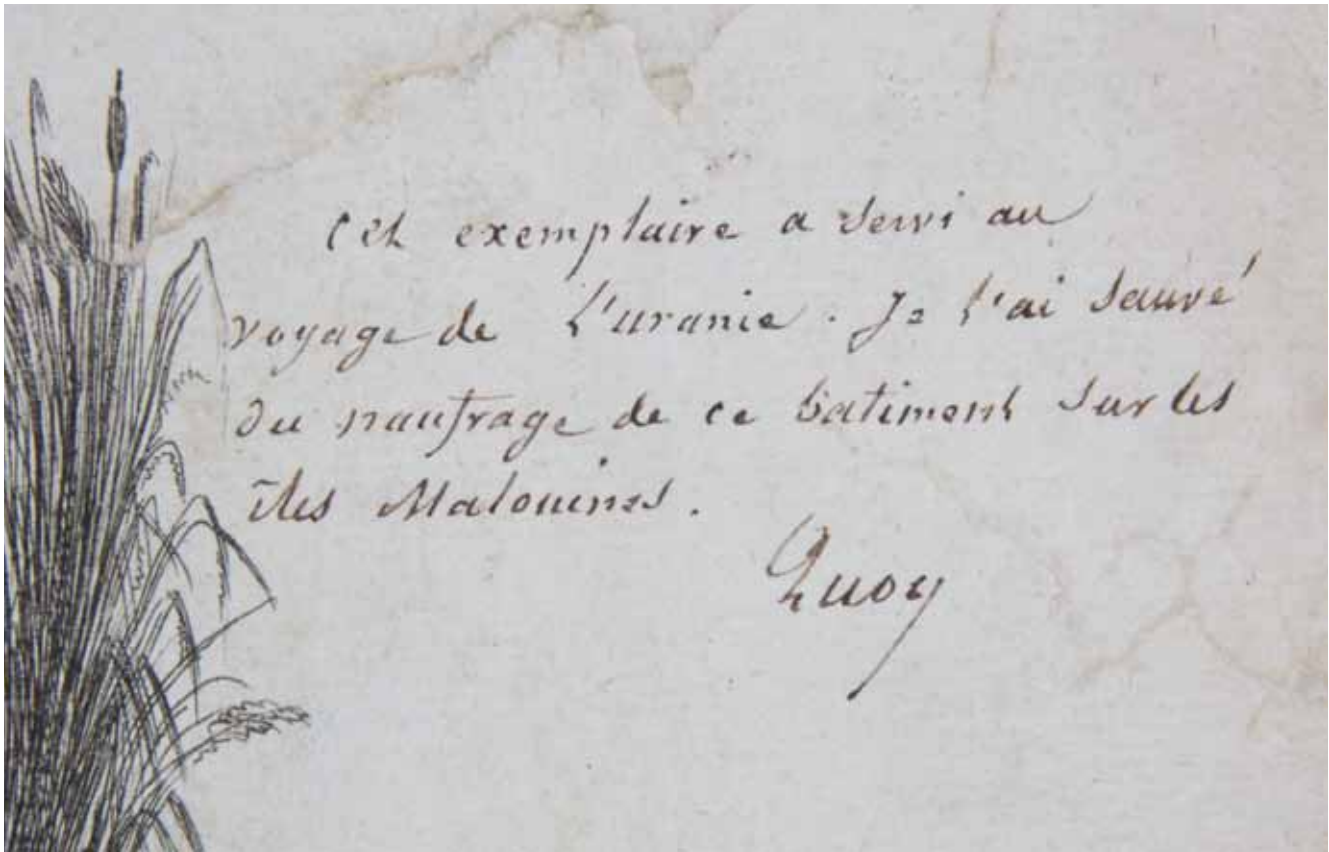 Cet exemplaire a servi au
voyage de L'uranie. Je l'ai sauvé
du naufrage de ce batiment sur les
îles Malouines.
Quoy